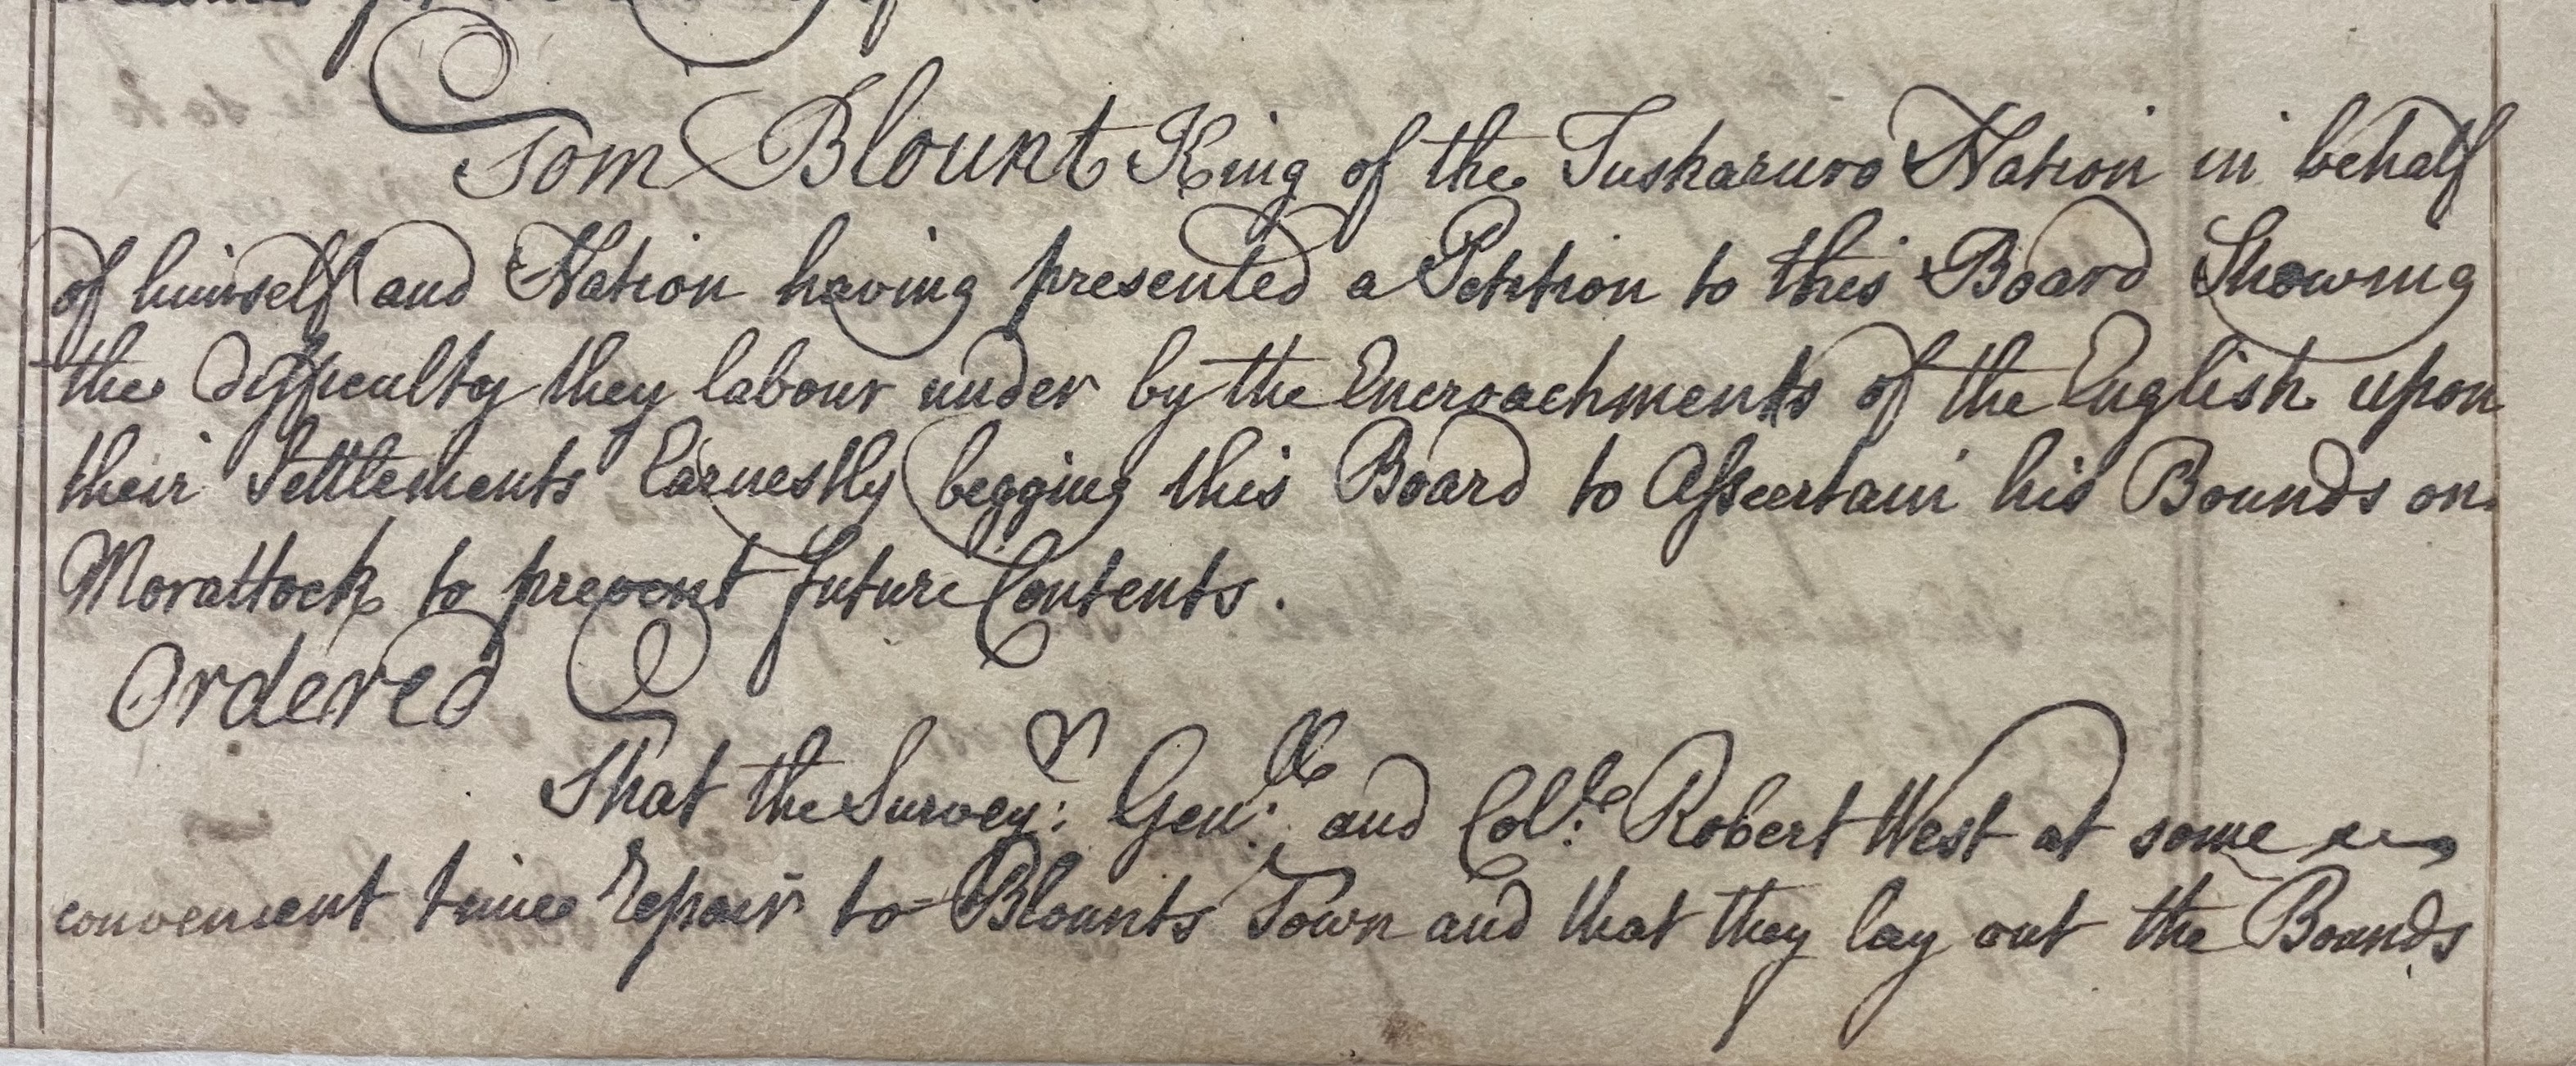 Tom Blount King of the Tuskaruro Nation in behalf
of himself and Nation having presented a Petition to this Board Showing
the Difficulty they labour under by the Encroachments of the English upon
their Settlements Earnestly begging this Board to Assertain his Bounds on
Morattock to prevent future Contents.
Ordered
That the Survey:r Gen:ll and Col:lo Robert West at some
convenient time repair to Blounts Town and that they lay out the Bounds